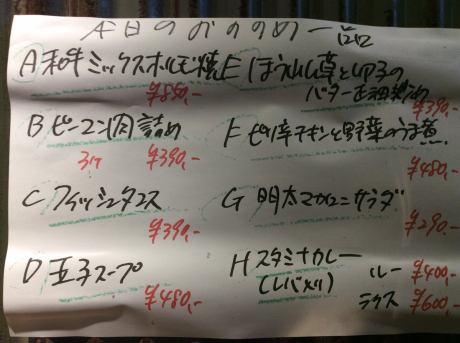 本日のおすすめ一品
A 和牛ミックスホルモン焼
¥850,-
B ピーマン肉詰め
3ケ ¥390,-
C フィッシュタコス
¥390,-
D 玉子スープ
¥480,-
E ほうれん草と卵の
バター正油炒め
¥390,-
F ピリ辛チキンと野菜のうま煮
¥480,-
G 明太マカロニサラダ
¥290,-
H スタミナカレー
(レバメン)
ルー ¥400,-
ライス ¥600,-